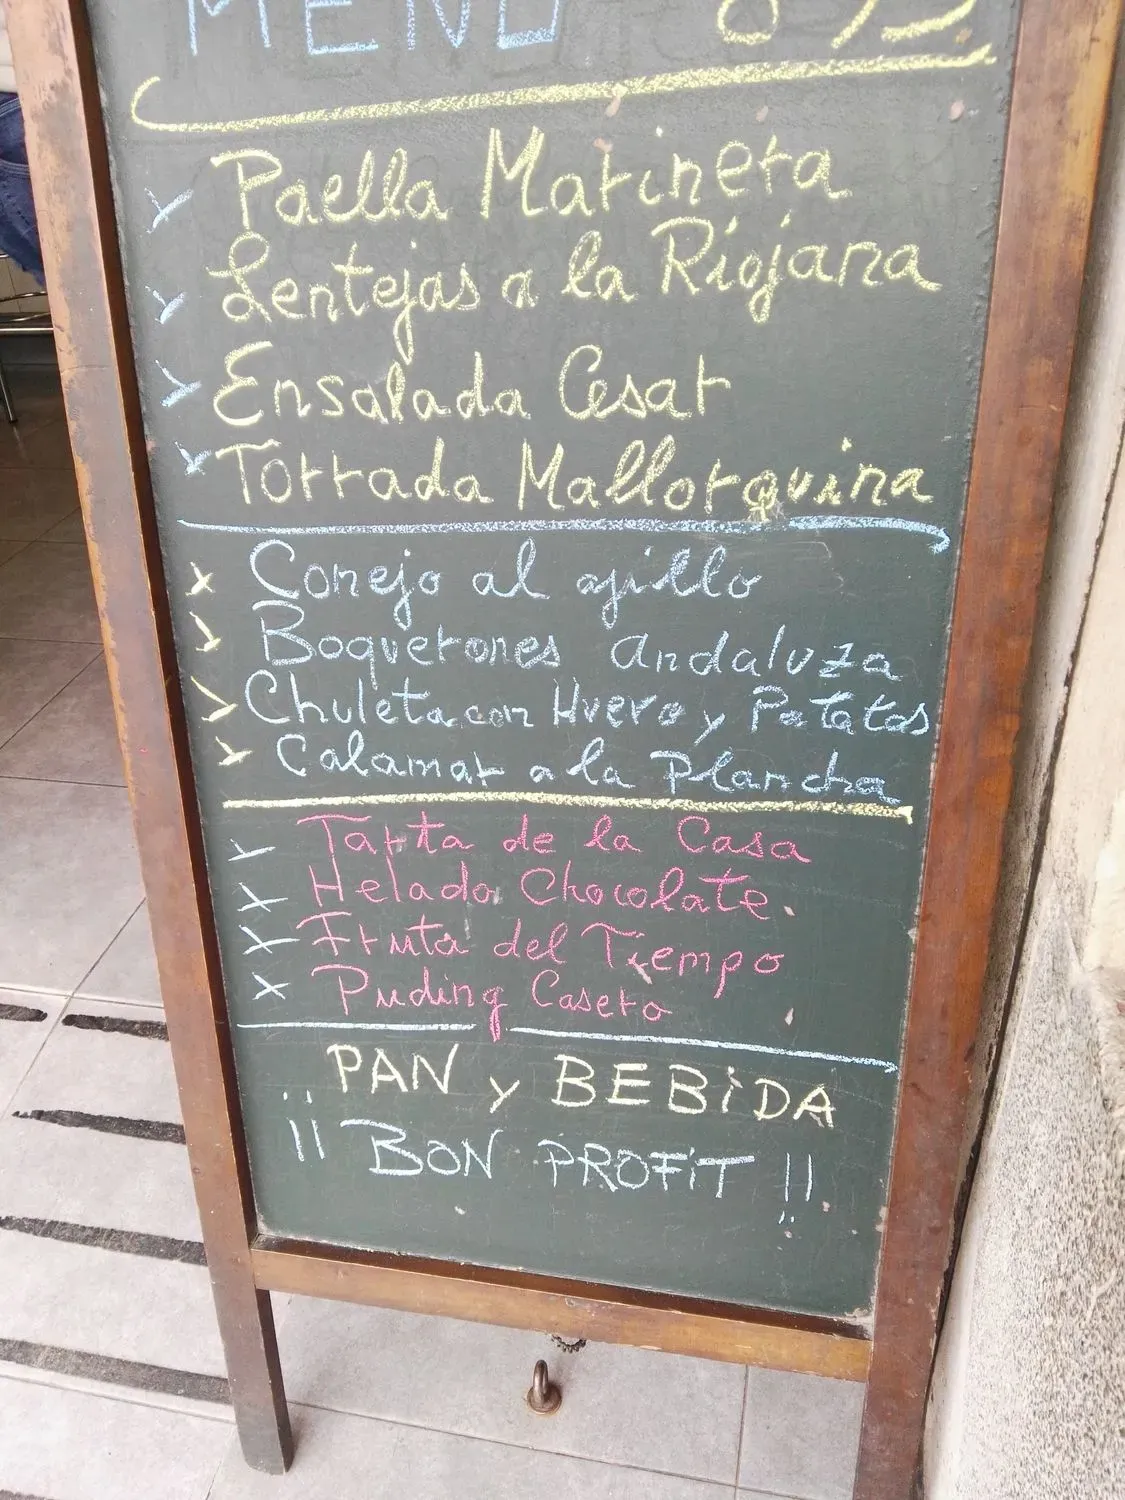 MENÚ
Paella Marinera
Lentejas a la Riojana
Ensalada Cesar
Torrada Mallorquina
Conejo al ajillo
Boquerones Andaluza
Chuleta con Huevo y Patatas
Calamar a la Plancha
Tarta de la Casa
Helado Chocolate.
Fruta del Tiempo
Puding Casero
PAN y BEBiDA
¡¡ BON PROFiT !!